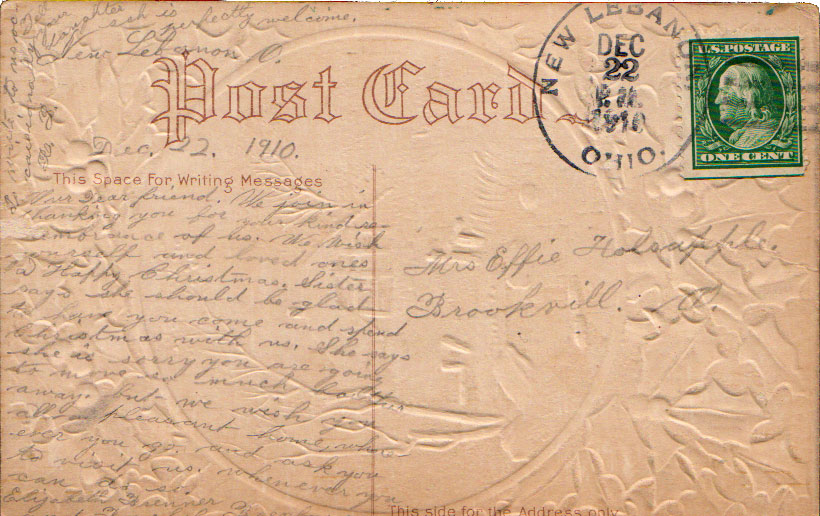 daughter
is perfectly welcome.
New Lebanon, O.
Post Card
Dec. 22, 1910.
This Space For Writing Messages
Our Dear friend. We join in
thanking you for your kind re-
membrance of us. We wish
yourself and loved ones
a Happy Christmas. Sister
says she should be glad
to have you come and spend
Christmas with us. She says
she is sorry you are going
to move so much farther
away. but we wish you
all a pleasant home, where
ever you go. and ask you
to visit us. whenever you
can do so.
Elizabeth Brenner
NEW LEBANON
DEC
22
P.M.
1910
OHIO.
U.S. POSTAGE
ONE CENT
Mrs Effie Holsapple.
Brookvill. O.
This side for the Address only